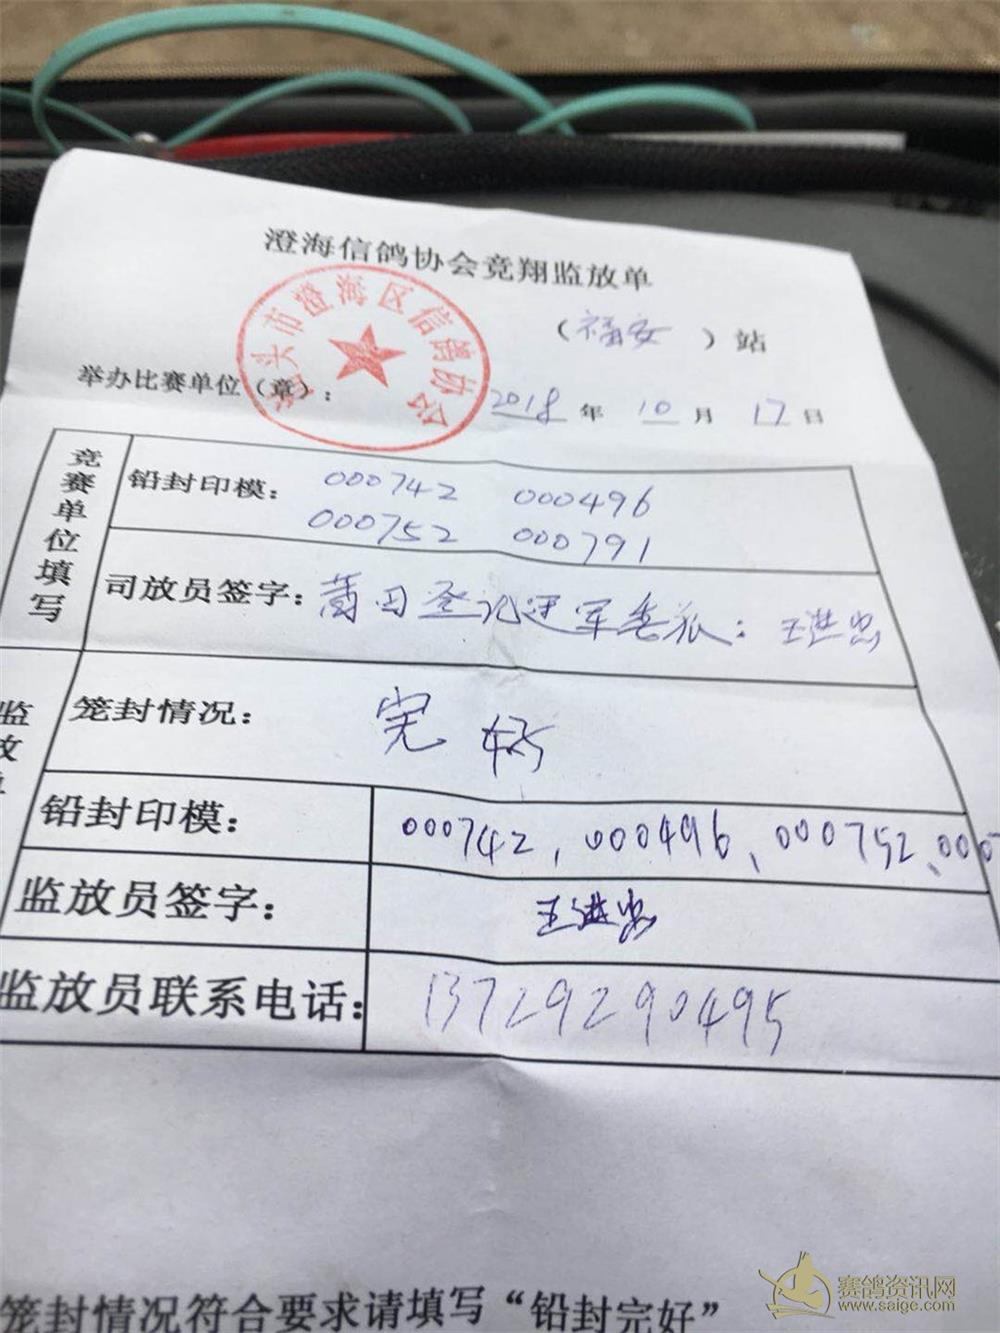 澄海信鸽协会竞翔监放单
（福安）站
汕头市澄海区信鸽协会
举办比赛单位（章）：
2018年10月17日
竞赛单位填写
铅封印模： 000742 000496
000752 000791
司放员签字： 王进忠
监放单
笼封情况： 完好
铅封印模： 000742，000496、000752、000
监放员签字： 王进忠
监放员联系电话： 13729290495
笼封情况符合要求请填写“铅封完好”
赛鸽资讯网
www.saige.com